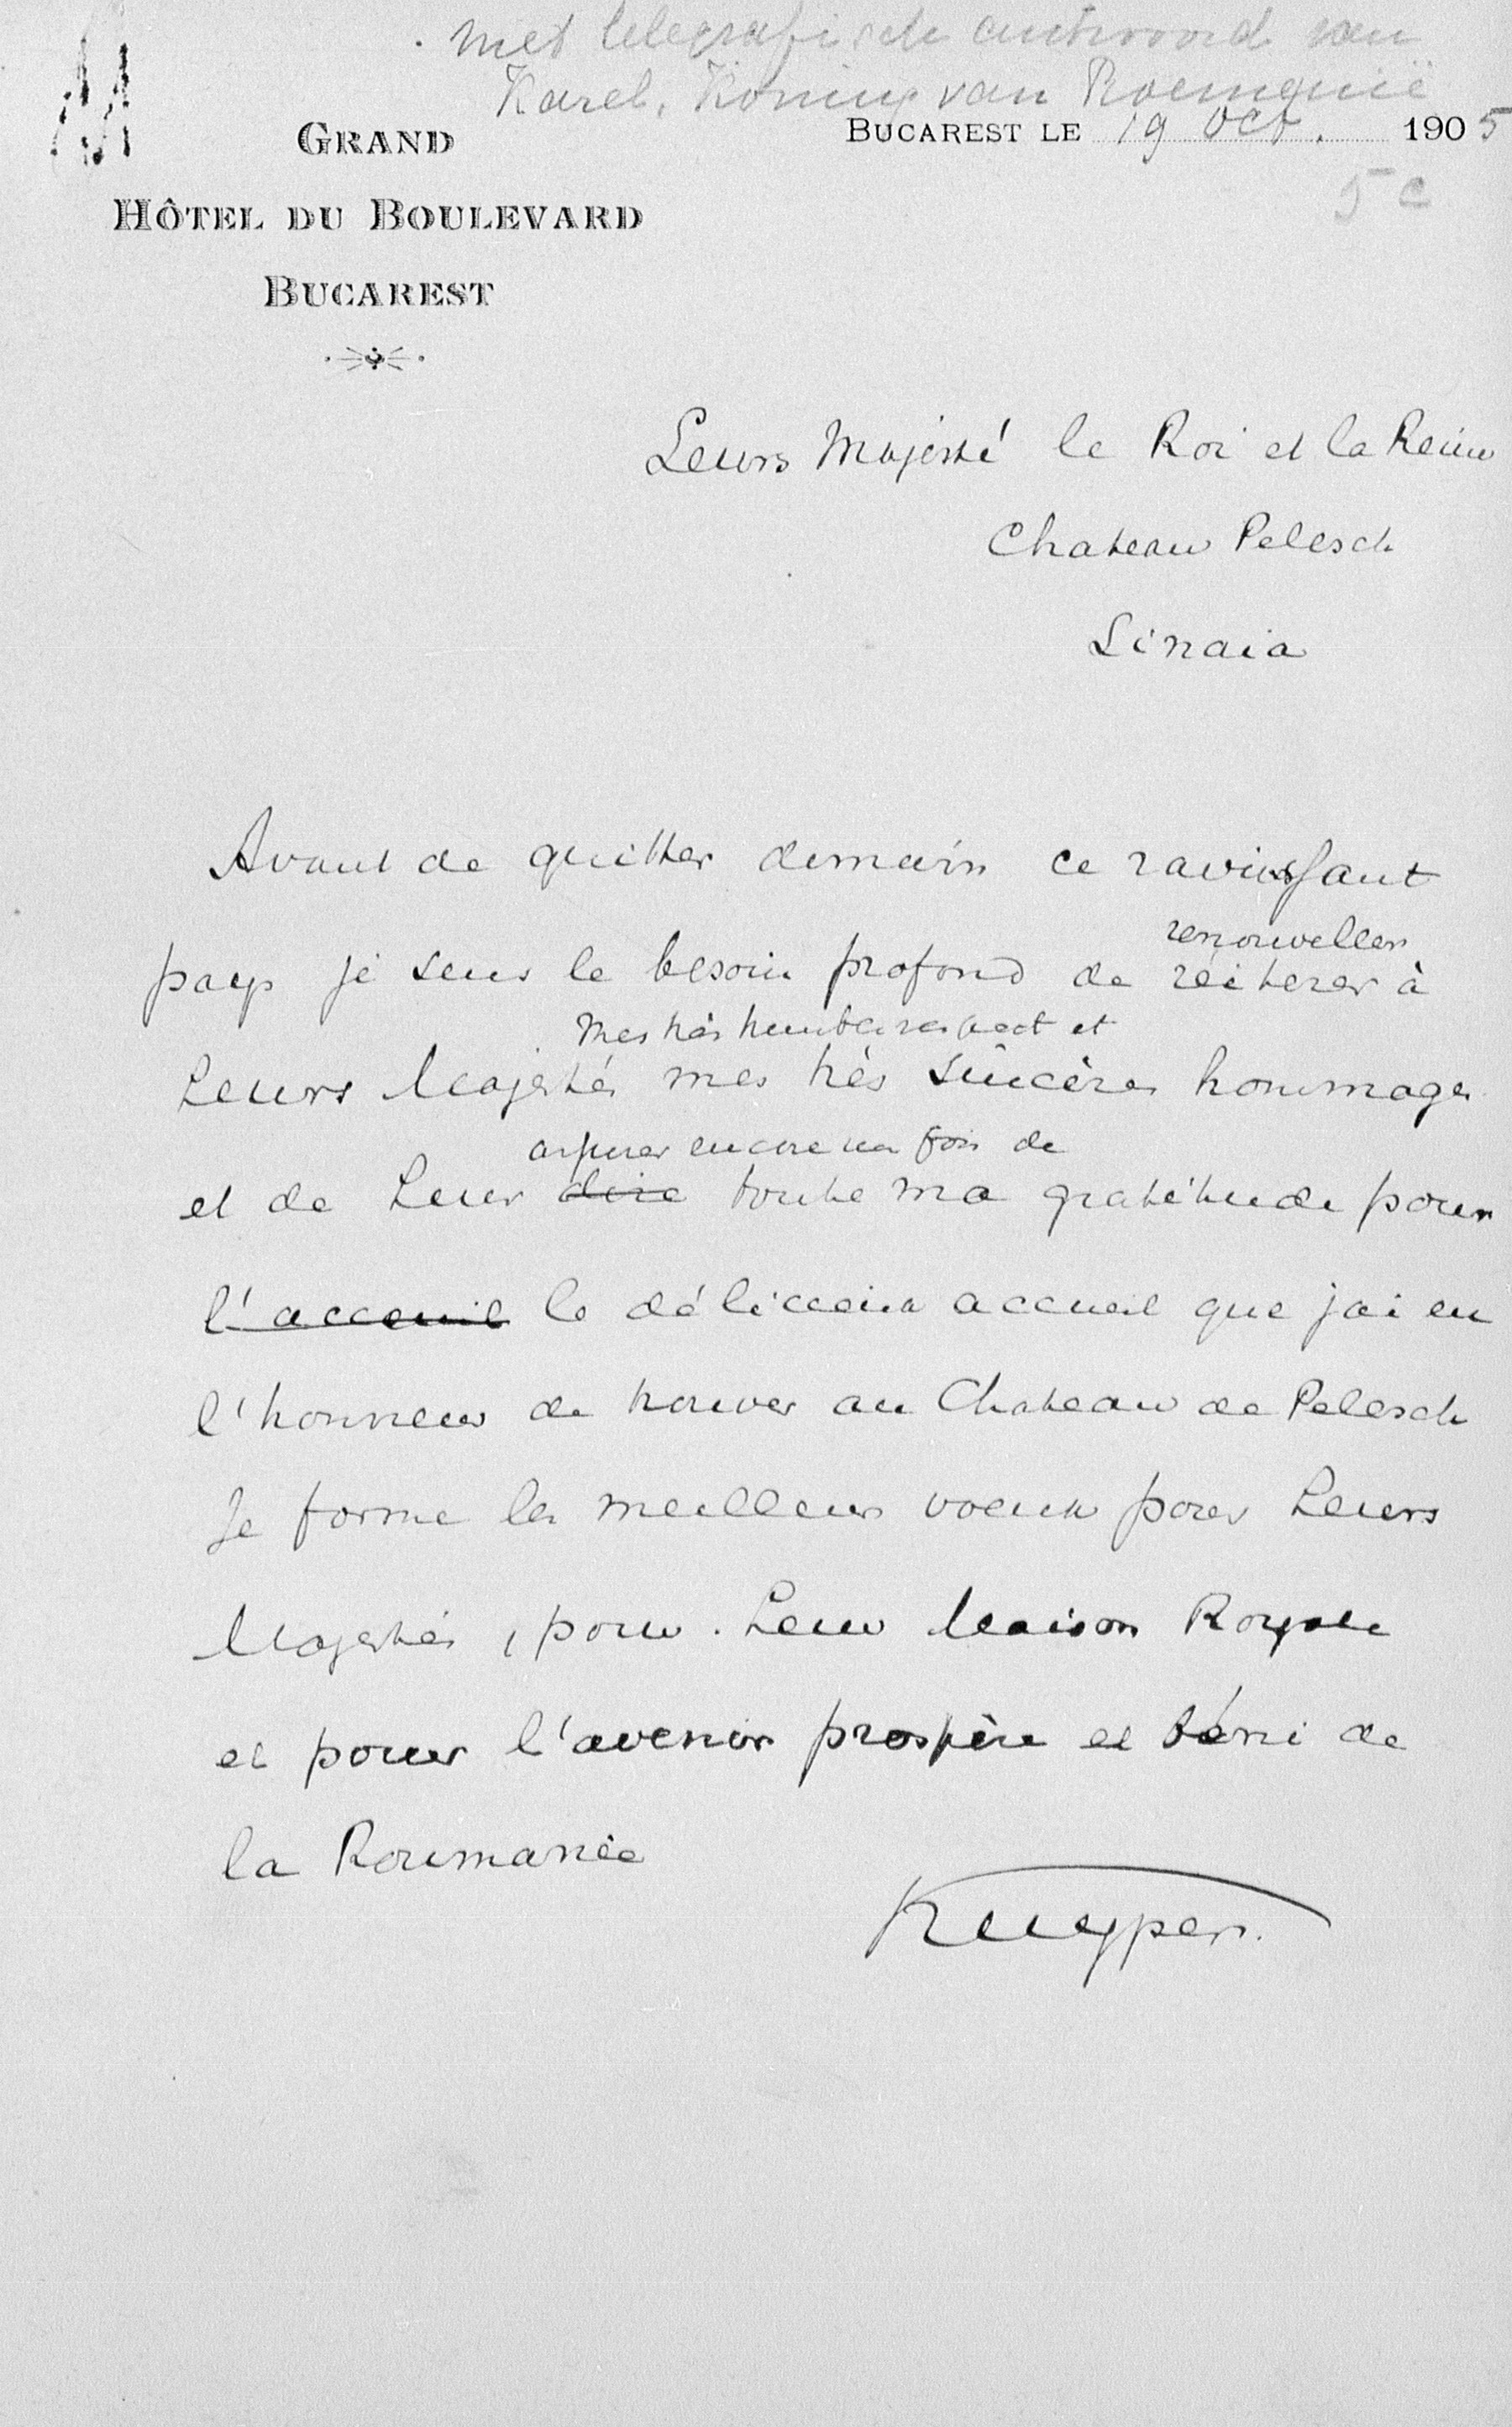 met telegrafisch antwoord van
Karel, Koning van Roemenië
GRAND
HÔTEL DU BOULEVARD
BUCAREST
BUCAREST LE 19 Oct. 1905
5 c
Leurs Majesté le Roi et la Reine
Chateau Pelesch
Sinaia
Avant de quitter demain ce ravissant
renouveller
pays je sens le besoin profond de réiterer à
mes très humble respect et
Leurs Majestés mes très sincères hommages
assurer encore une fois de
et de Leur dire toute ma gratitude pour
l'acceuil le délicieux accueil que j'ai eu
l'honneur de trouver au Chateau de Pelesch
Je forme les meilleurs voeux pour Leurs
Majestés, pour Leur Maison Royale
et pour l'avenir prospère et béni de
la Roumanie
Kuyper.